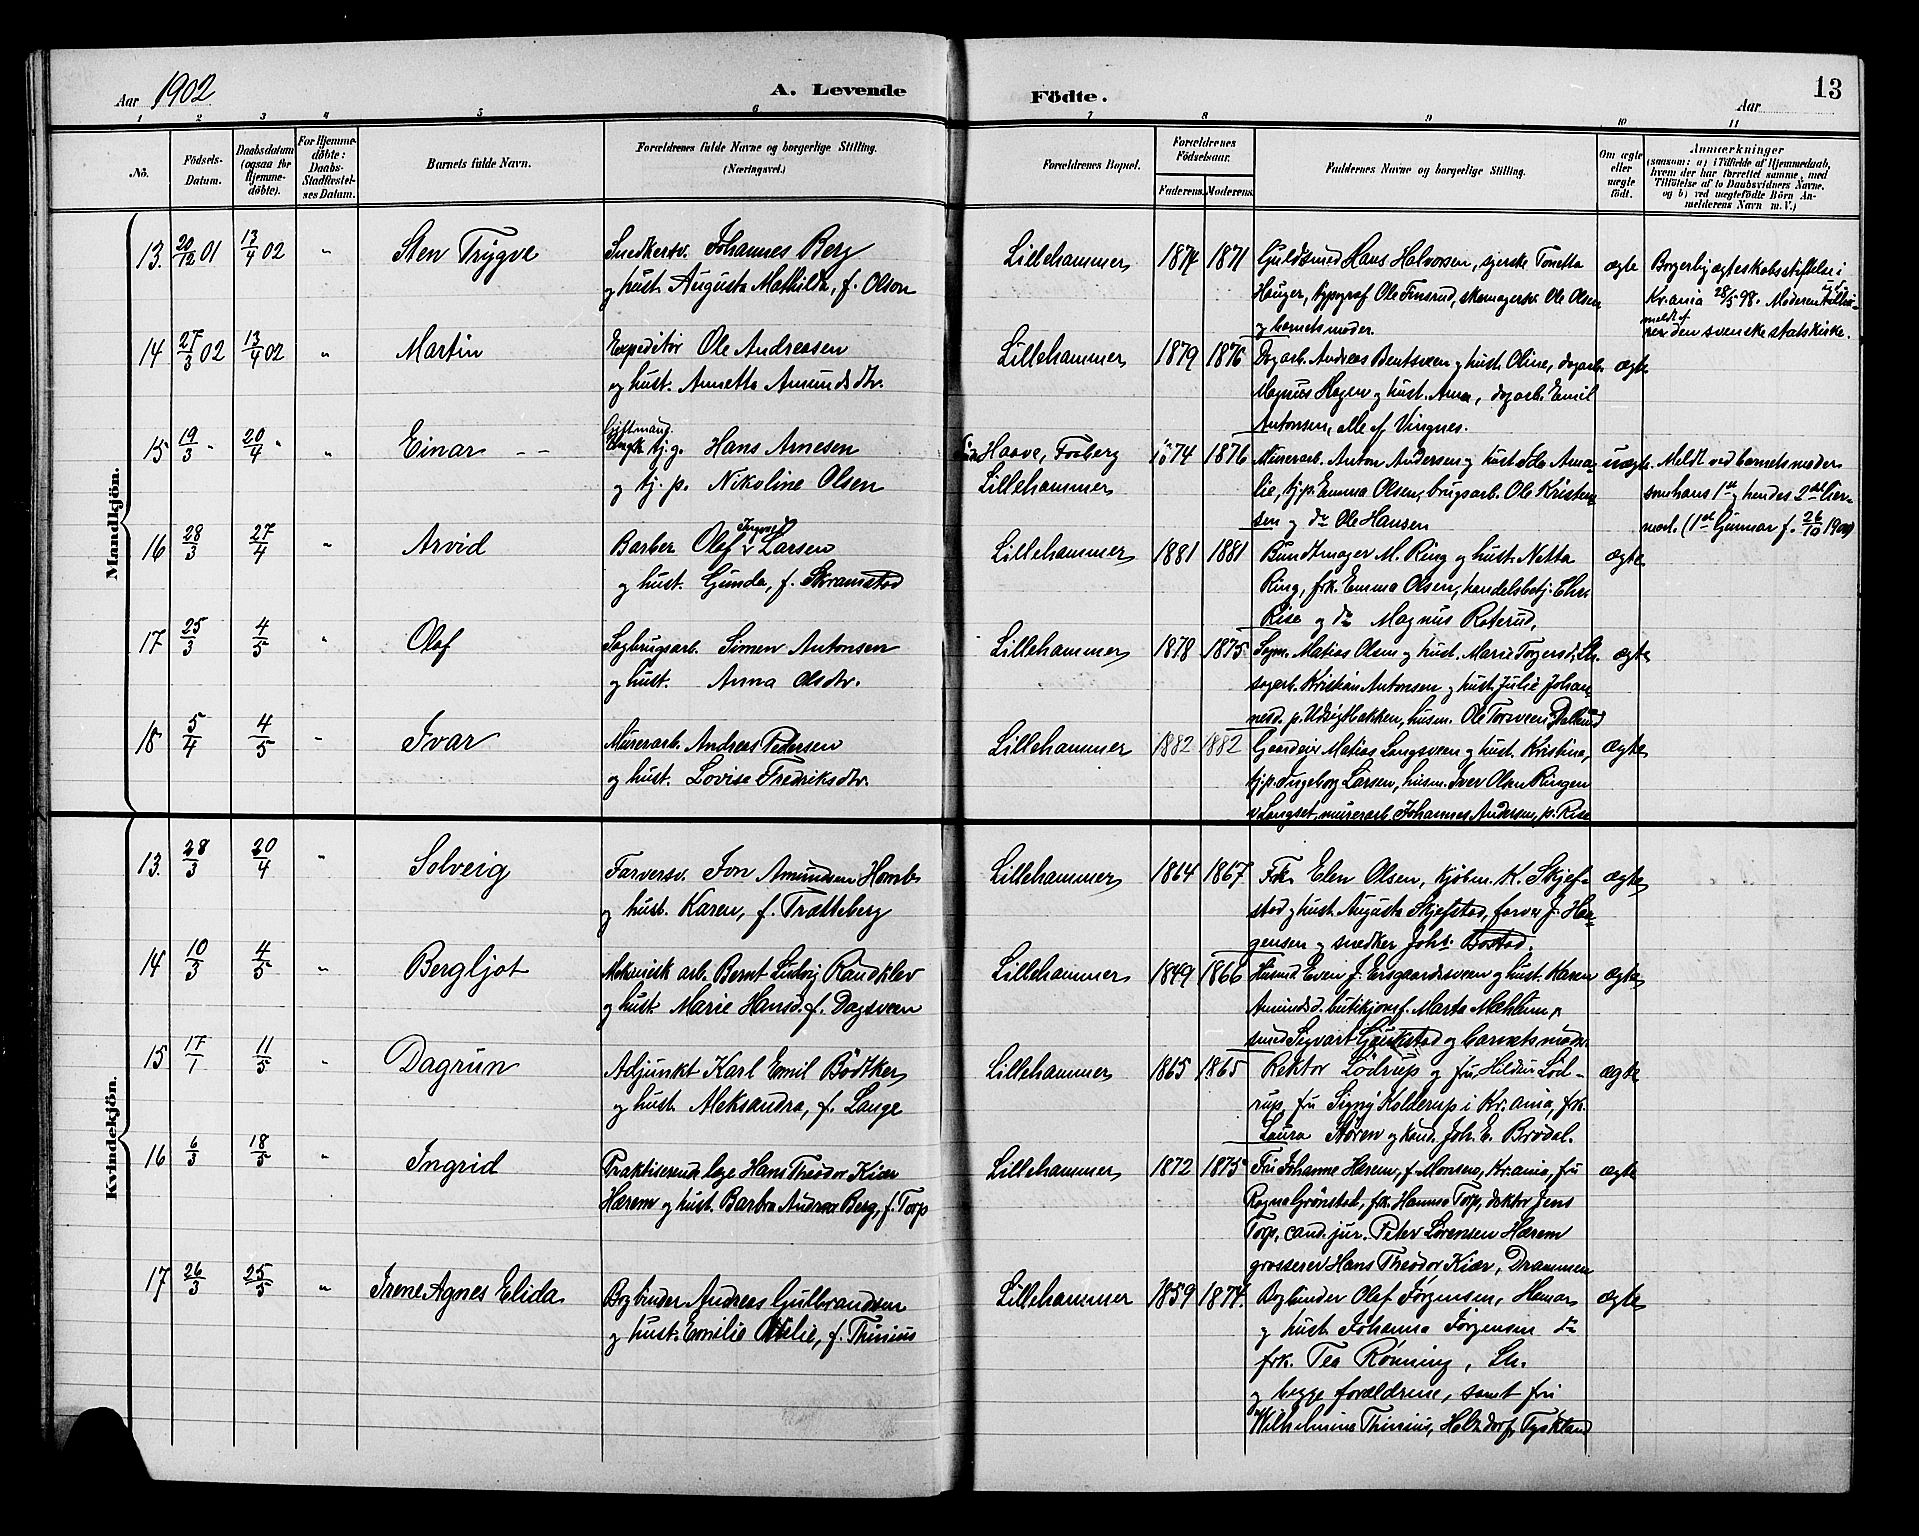 Aar 1902
A. Levende
Födte.
Aar
13
1 2 3 4 5 6 7 8 9 10 11
No.
Födsels-
Datum.
Daabsdatum
(ogsaa for
Hjemme-
döbte).
For Hjemme-
döbte:
Daabs-
Stadfæstel-
ses Datum.
Barnets fulde Navn.
Forældrenes fulde Navne og borgerlige Stilling.
(Næringsvei.)
Forældrenes Bopæl.
Forældrenes
Födselsaar.
Faderens.
Moderens.
Faddernes Navne og borgerlige Stilling.
Om ægte
eller
uægte
födt.
Anmærkninger
(saasom: a) i Tilfælde af Hjemmedaab,
hvem der har forrettet samme, med
Tilföielse af to Daabsvidners Navne,
og b) ved uægtefödte Börn An-
melderens Navn m. V.)
Mandkjön.
13. 20/12 01 13/4 02 " Sten Trygve
Snedkersv. Johannes Berg
og hust. Augusta Mathilde, f. Olson
Lillehammer 1874 1871
Guldsmed Hans Halvorsen, syerske Tonetta
Hauger, typograf Ole Finsrud, skomagersv. Ole Olsen
og barnets moder.
ægte
Borgerlig ægteskabsstiftelse i
Kr.ania 28/5 98. Moderen
den svenske statskirke.
14 27/3 02 13/4 02 " Martin
Expeditör Ole Andreasen
og hust. Annetta Amundsdtr.
Lillehammer 1879 1876
Dagarb. Andreas Bentsveen og hust. Oline, dagarb.
Magnus Hagen og hust. Anna, dagarb. Emil
Antonsen, alle af Vingnes.
ægte
15 19/3 " 20/4 " " Einar
Giftmand
tj.g. Hans Arnesen
og tj. p. Nikoline Olsen
Haave, Faaberg
Lillehammer
1874 1876
Murerarb. Anton Andersen og hust. Ida Ama-
lie, tjp. Emma Olsen, brugsarb. Ole Kristen-
sen og do Ole Hansen
uægte
Meldt ved barnets moder
som hans 1ste og hendes 2det leier-
maal. (1st Gunnar f. 26/10 1900)
16 28/3 27/4 " Arvid
Barber Olaf Ingvald Larsen
og hust. Gunda, f. Skramstad
Lillehammer 1881 1881
Bundtmager M. Ring og hust. Netta
Ring, frk. Emma Olsen, handelsbetj. Chr.
Rise og do Magnus Roterud.
ægte
17 25/3 4/5 " Olaf
Sagbrugsarb. Simen Antonsen
og hust. Anna Olsdtr.
Lillehammer 1878 1875
Sagm. Matias Olsen og hust. Marie Torgersd., Lh.
sagarb. Kristian Antonsen og hust. Julie Johan-
nesd. p. Udsigtbakken, husm. Ole Torsveen
ægte
18 5/4 4/5 " Ivar
Murerarb. Andreas Pedersen
og hust. Lovise Fredriksdtr.
Lillehammer 1882 1882
Gaardeier Matias Langsveen og hust. Kristina,
tj.p. Ingeborg Larsen, husm. Iver Olsen Ringen
u/Langset, murerarb. Johannes Andersen, p. Rise
ægte
Kvindekjön.
13. 28/3 20/4 " Solveig
Farversv. Jon Amundsen
og hust. Karen, f. Trætteberg
Lillehammer 1864 1867
Frk. Elen Olsen, kjøbm. K. Skjef-
stad og hust. Augusta Skjefstad, farver J. Haa-
gensen og snedker Johs. Bostad.
ægte
14 10/3 4/5 " Bergljot
Mekanisk arb. Bernt Ludvig Randklev
og hust. Marie Hansd. f. Dagsveen
Lillehammer 1849 1866
Husmd Even J. Ersgaardsveen og hust. Karen
Amundsd. butikjomf. Marta Mæhlum,
smed Sigvart Gjørkstad og barnets moder
ægte
15 17/1 11/5 " Dagrun
Adjunkt Karl Emil Bödtker
og hust. Aleksandra, f. Lange
Lillehammer 1865 1865
Rektor Lödrup og fru Hildur Löd-
rup, fru Signy Kolderup i Kr.ania, frk.
Laura Støren og kand. Joh. E. Brodal.
ægte
16 6/3 18/5 " Ingrid
Praktiserende læge Hans Theodor Kiær
Hærem og hust. Barbra Andrea Berg, f. Torp
Lillehammer 1872 1875
Fru Johanne Hærem, f. Monsen, Kr.ania, fru
Ragna Grønstad, frk. Hanna Torp, doktor Jens
Torp, cand. jur. Peter Lorensen Hærem
grosserer Hans Theodor Kiær, Drammen
ægte
17 26/3 25/5 " Irene Agnes Elida
Bogbinder Andreas Gulbrandsen
og hust. Emilie Otilie, f. Thinius
Lillehammer 1859 1874.
Bogbinder Olaf Jørgensen, Hamar
og hust. Johanna Jørgensen do
frk. Tea Rønning, Lh.
og begge forældrene, samt fru
Wilhelmine Thinius, Holzdorf, Tyskland
ægte